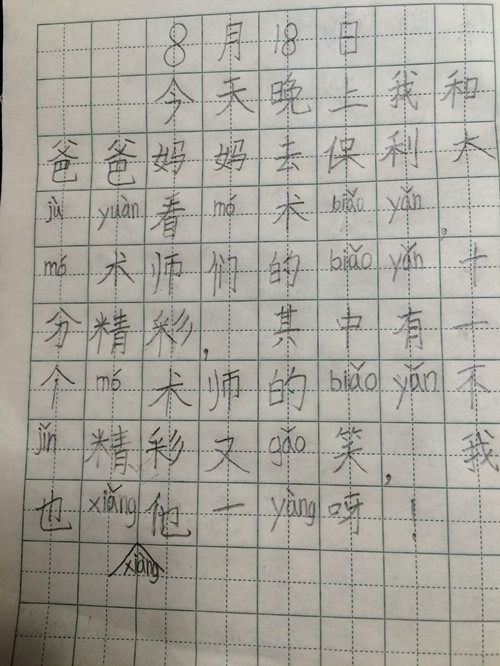 8月18日
今天晚上我和
爸爸妈妈去保利大
jù yuàn 看 mó 术 biǎo yǎn,
mó 术师们的 biǎo yǎn 十
分精彩,其中有一
个 mó 术师的 biǎo yǎn 不
jǐn 精彩又 gǎo 笑,我
也 xiǎng 他一 yàng 呀!
xiàng